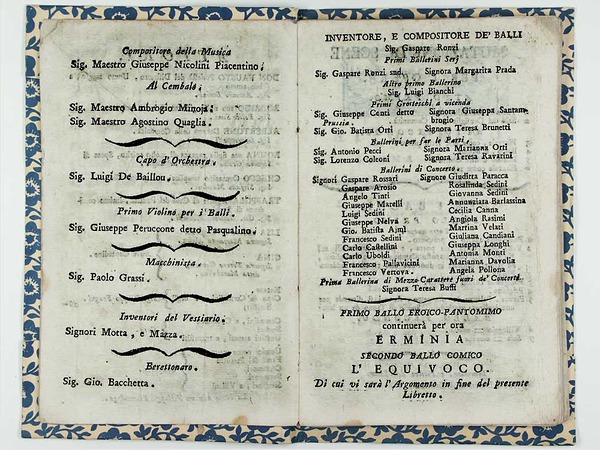 Compositore della Musica
Sig. Maestro Giuseppe Nicolini Piacentino.
Al Cembalo.
Sig. Maestro Ambrogio Minoja.
Sig. Maestro Agostino Quaglia.
Capo d'Orchestra.
Sig. Luigi De Baillou.
Primo Violino per i Balli.
Sig. Giuseppe Peruccone detto Pasqualino.
Macchinista.
Sig. Paolo Grassi.
Inventori del Vestiario.
Signori Motta, e Mazza.
Berettonaro.
Sig. Gio. Bacchetta.
INVENTORE, E COMPOSITORE DE' BALLI
Sig. Gaspare Ronzi
Primi Ballerini Serj
Sig. Gaspare Ronzi sud. Signora Margarita Prada
Altro primo Ballerino
Sig. Luigi Bianchi
Primi Grotteschi a vicenda
Sig. Giuseppe Centi detto Signora Giuseppa Santam-
Prussia. brogio
Sig. Gio. Batista Orti Signora Teresa Brunetti
Ballerini per far le Parti.
Sig. Antonio Pecci Signora Marianna Orti
Sig. Lorenzo Coleoni Signora Teresa Ravarini
Ballerini di Concerto.
Signori Gaspare Rossari Signore Giuditta Paracca
Gaspare Arosio Rosalinda Sedini
Angelo Tinti Giovanna Sedini
Giuseppe Marelli Annunziata Barlassina
Luigi Sedini Cecilia Canna
Giuseppe Nelva Angiola Rasimi
Gio. Batista Ajmi Martina Velati
Francesco Sedini Giuliana Candiani
Carlo Castellini Giuseppa Longhi
Carlo Uboldi Antonia Monti
Francesco Pallavicini Marianna Davolia
Francesco Vertova. Angela Pollona
Prima Ballerina di Mezzo Carattere fuori de' Concerti
Signora Teresa Buffi
PRIMO BALLO EROICO-PANTOMIMO
continuerà per ora
ERMINIA
SECONDO BALLO COMICO
L' EQUIVOCO.
Di cui vi sarà l'Argomento in fine del presente
Libretto.